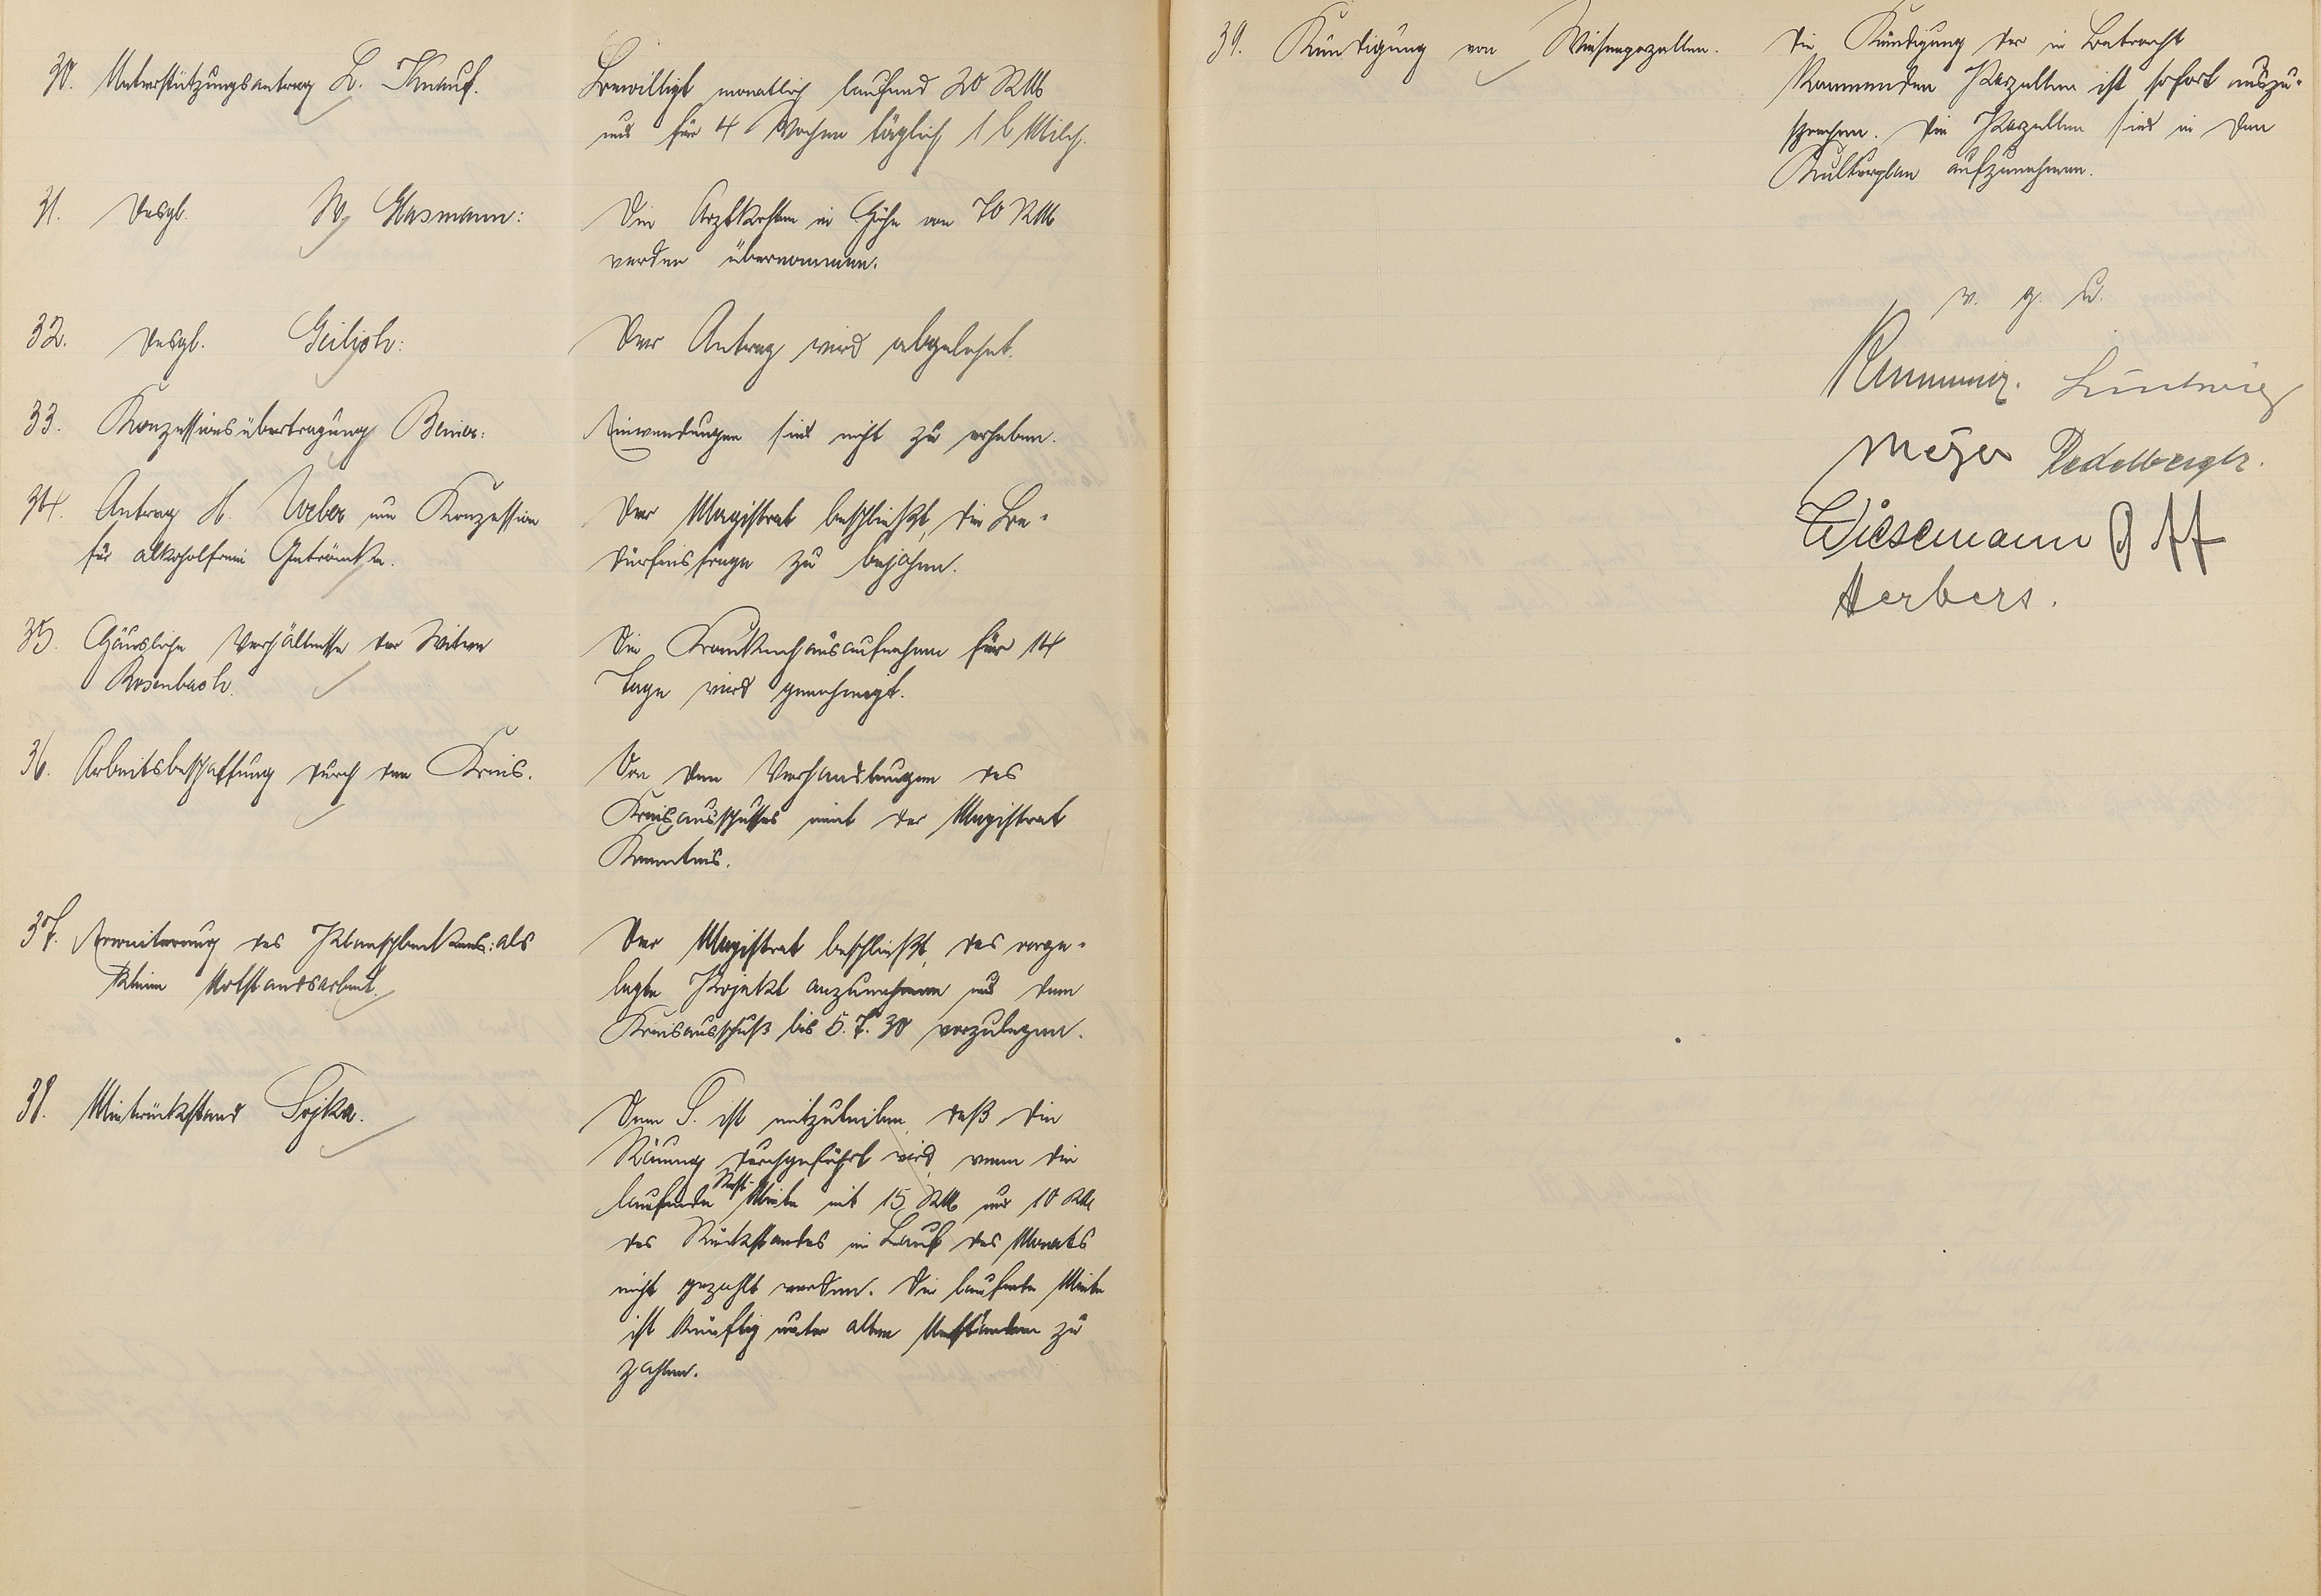 30. Unterstützungsantrag L. Knauf.
Bewilligt monatlich laufend 20 RM
und für 4 Wochen täglich 1 l Milch.
31. desgl. W. Glasmann:
Die Arztkosten in Höhe von 70 RM
werden übernommen.
32. desgl. Geilich:
Der Antrag wird abgelehnt.
33. Konzessionsübertragung Benier:
Einwendungen sind nicht zu erheben.
34. Antrag H. Weber um Konzession
für alkoholfreie Getränke.
Der Magistrat beschließt, die Be-
dürfnisfrage zu bejahen.
35. Häusliche Verhältnisse der Witwe
Rosenbach.
Die Krankenhausaufnahme für 14
Tage wird genehmigt.
36. Arbeitsbeschaffung durch den Kreis.
Von den Verhandlungen des
Kreisausschusses nimt der Magistrat
Kenntnis.
37. Erweiterung des Planschbeckens: als
kleine Notstandsarbeit.
Der Magistrat beschließt, das vorge-
legte Projekt anzunehmen und dem
Kreisausschuß bis 5. 7. 30 vorzulegen.
38. Mietrückstand Sojka.
Dem S. ist mitzuteilen, daß die
Räumung durchgeführt wird, wenn die
laufende Rest-Miete mit 15 RM und 10 RM
des Rückstandes im Lauf des Monats
nicht gezahlt werden. Die laufende Miete
ist künftig unter allen Umständen zu
zahlen.
39. Kündigung von Wiesenparzellen.
Die Kündigung der in Betracht
kommenden Parzellen ist sofort auszu-
sprechen. Die Parzellen sind in den
Kulturplan aufzunehmen.
v. g. u.
Ludwig
Meyer
Wiesemann Off
Herbers.